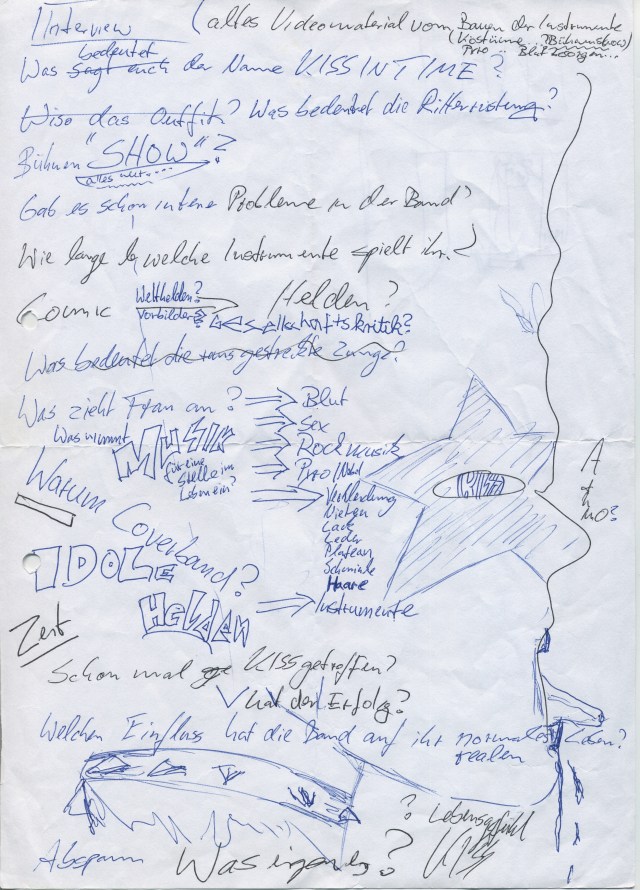 Interview (alles Videomaterial vom Bauen der Instrumente
Kostüme, Bühnenshow)
Pyro Blut
bedeutet
Was sagt euch der Name KISSIN TIME?
Wiso das Outfit? Was bedeutet die Ritterrüstung?
Bühnen "SHOW"?
alles nur....
Gab es schon interne Probleme in der Band?
Wie lange welche Instrumente spielt ihr?
Comic Welthelden? Helden?
Vorbilder? Gesellschaftskritik?
Was bedeutet die rausgestreckte Zunge?
Was zieht Fan an? Blut
Sex
Was nimmt MUSIK Rockmusik
für eine Pyro
Stelle im
Leben ein?
Verkleidung
Nieten
Lack
Leder
Plateau
Schminke
Haare
Instrumente
KISS
Warum Coverband?
IDOLE
Helden
Zeit
Schon mal KISS getroffen?
hat den Erfolg?
Welchen Einfluss hat die Band auf ihr normales Leben?
realen
? Lebensgefühl
KISS
Abspann